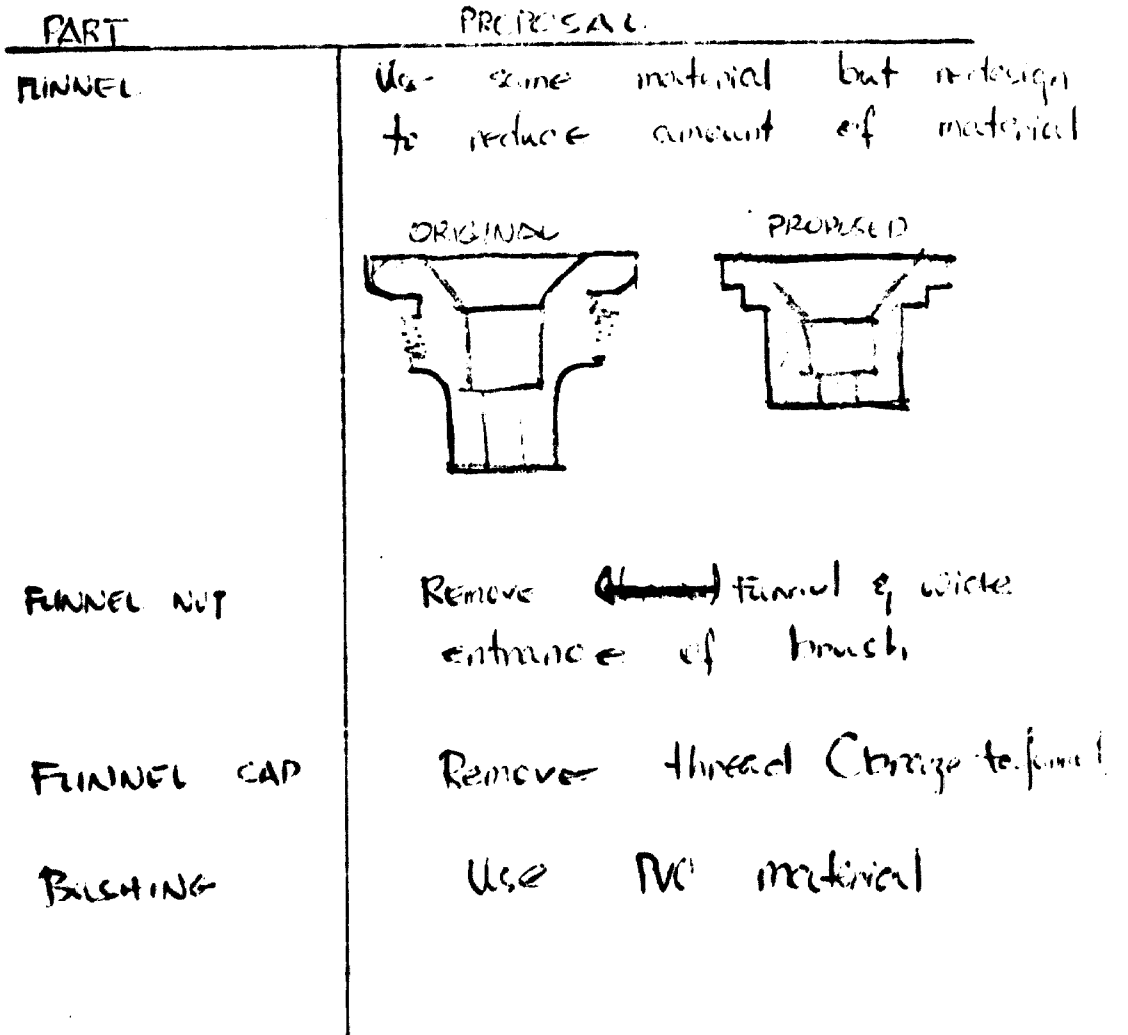 PART PROPOSAL
FUNNEL Use same material but redesign
to reduce amount of material
ORIGINAL PROPOSED
FUNNEL NUT Remove funnel & wide
entrance of
FUNNEL CAP Remove thread (braze to funnel
BUSHING Use PVC material